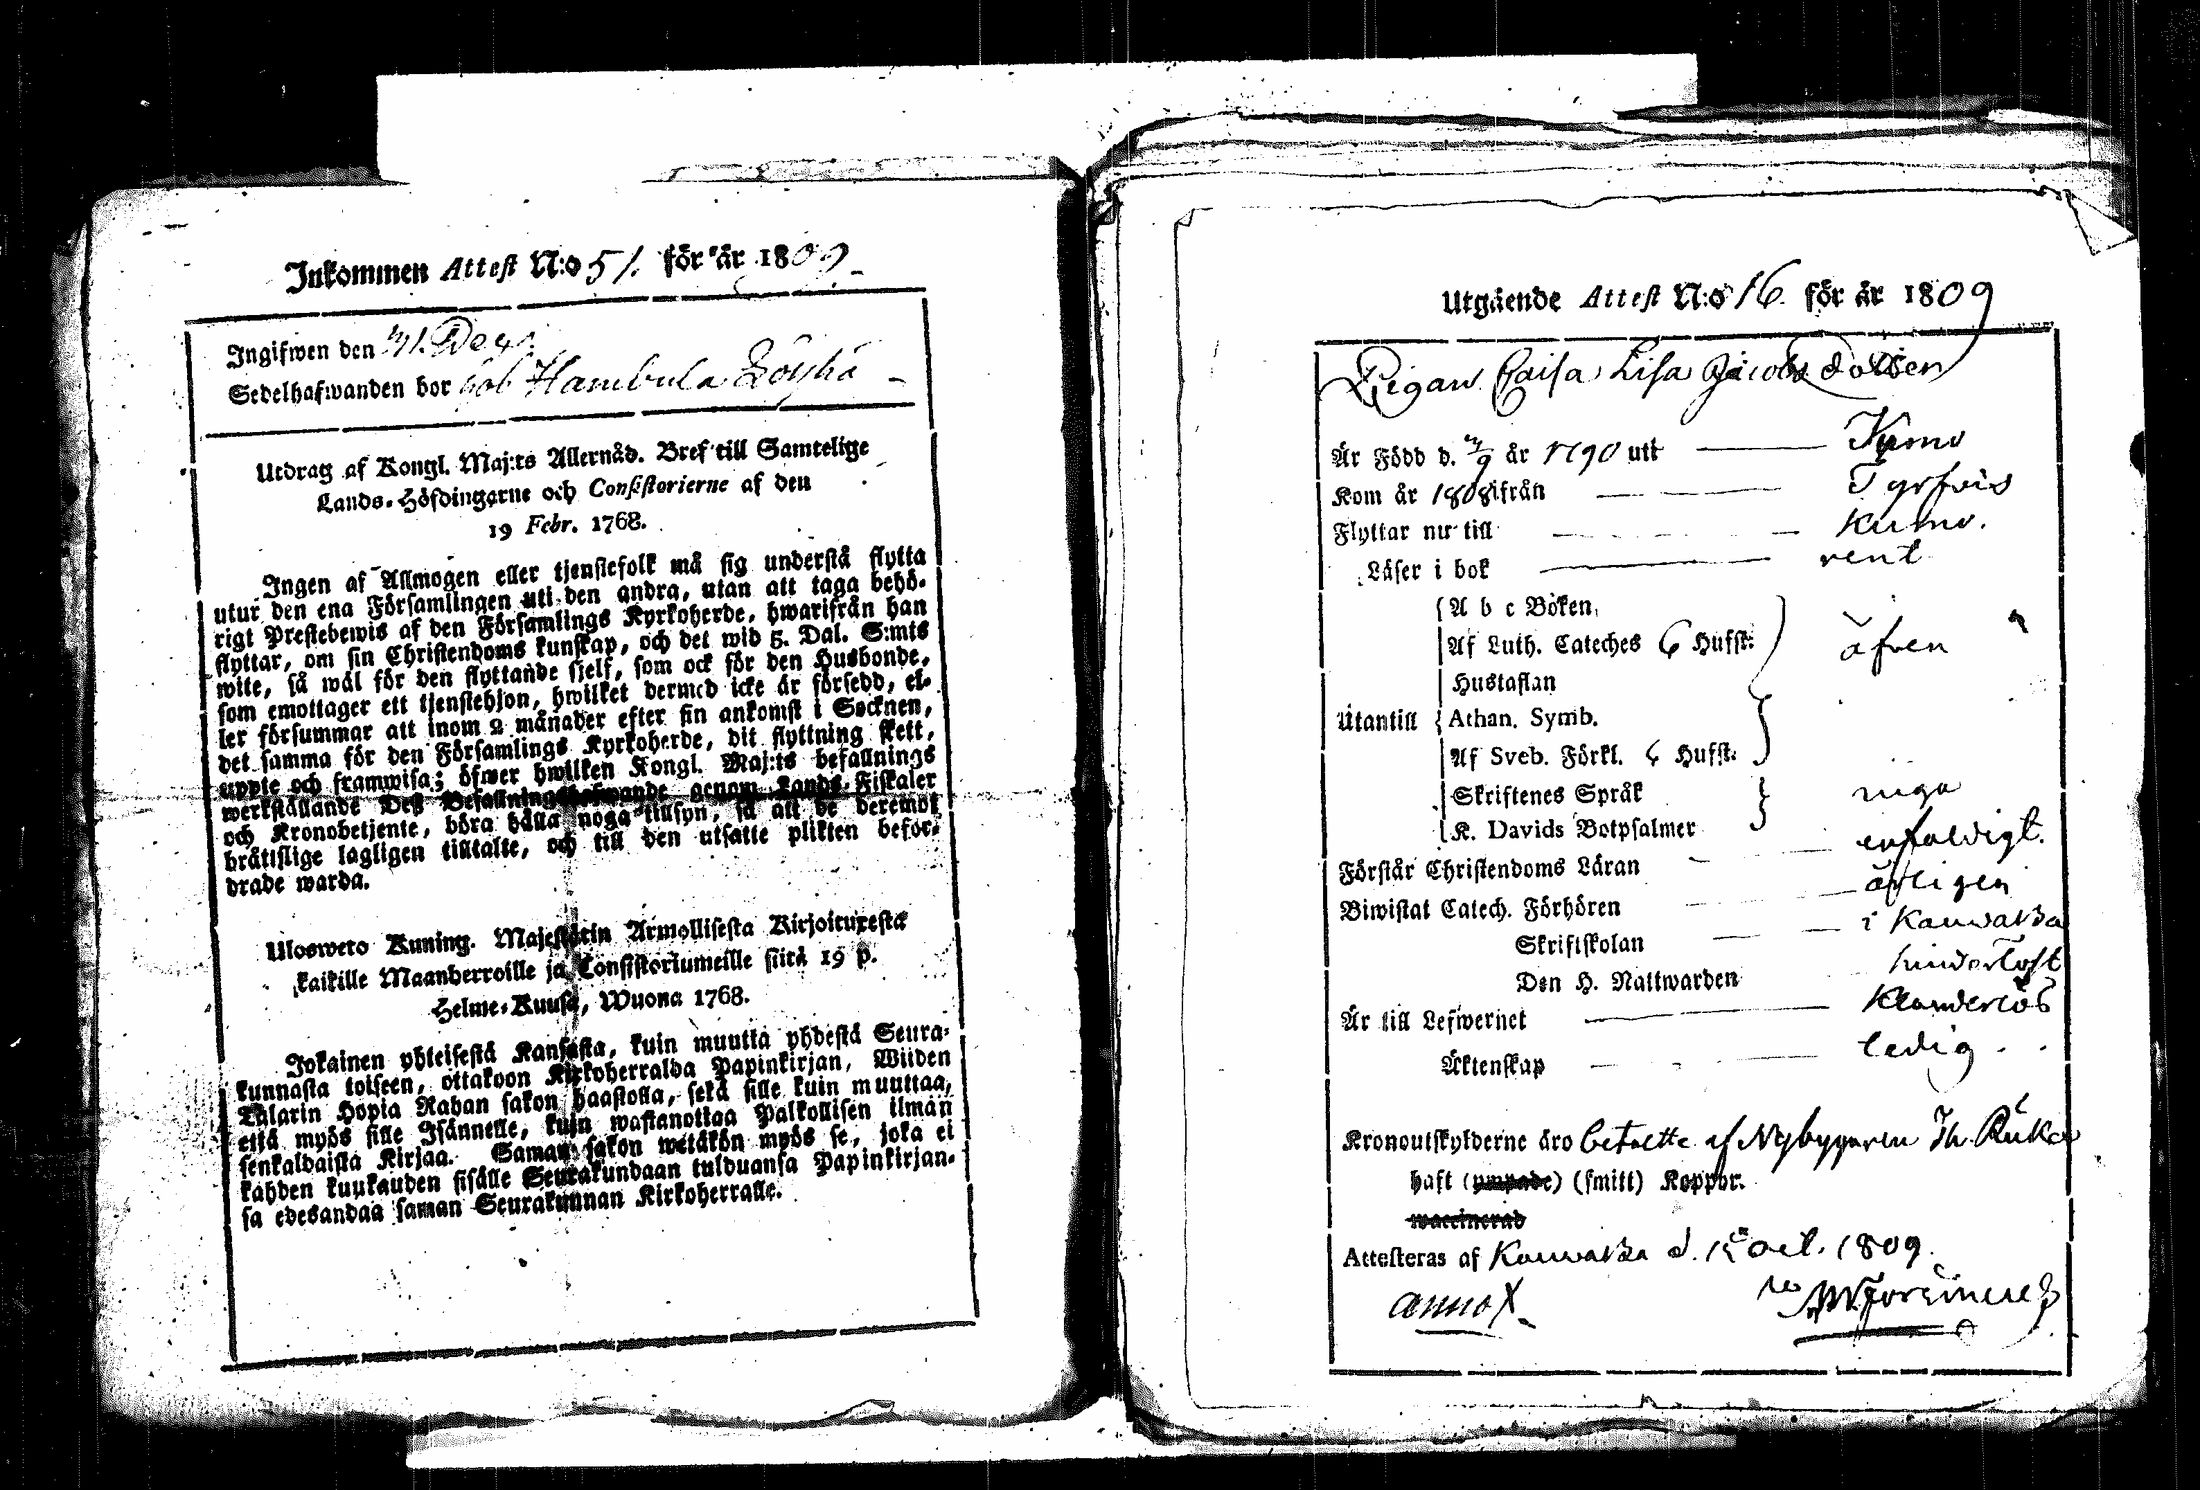 Inkommen Attest N:o 51. för år 1809.
Ingifwen den 31. Dec.
Sedelhafwanden bor hos Hambula Löyhä
Utdrag af Kongl. Maj:ts Allernåd. Bref till Samtelige
Lands-Höfdingarne och Consistorierne af den
19 Febr. 1768.
Ingen af Allmogen eller tjenstefolk må sig understå flytta
utur den ena Församlingen uti den andra, utan att taga behö-
rigt Prestebewis af den Församlings Kyrkoherde, hwarifrån han
flyttar, om sin Christendoms kunskap, och det wid 5. Dal. S:mts
wite, så wäl för den flyttande sjelf, som ock för den Husbonde,
som emottager ett tjenstehjon, hwilket dermed icke är försedd, el-
ler försummar att inom 2 månader efter sin ankomst i Socknen,
det samma för den Församlings Kyrkoherde, dit flyttning skett,
uppte och framwisa; öfwer hwilken Kongl. Maj:ts befallnings
werkställande Dess Befallningshafwande genom Lands-Fiskaler
och Kronobetjente, böra hålla noga tillsyn, så att de deremot
bråttslige lagligen tilltalte, och till den utsatte plikten befor-
drade warda.
Ulosweto Kuning. Majestätin Armollisesta Kirjoituxesta
kaikille Maanherroille ja Consistoriumeille siitä 19 p.
Helme-Kuusa, Wuona 1768.
Jokainen yhteisestä Kansasta, kuin muutta yhdestä Seura-
kunnasta toiseen, ottakoon Kirkoherralda Papinkirjan, Wiiden
Talarin Hopia Rahan sakon haastolla, sekä sille kuin muuttaa,
että myös sille Isännelle, kuin wastanottaa Palkollisen ilman
senkaldaista Kirjaa. Saman sakon wetäkön myös se, joka ei
kahden kuukauden sisälle Seurakundaan tulduansa Papinkirjan-
sa edesandaa saman Seurakunnan Kirkoherralle.
Utgående Attest N:o 16. för år 1809
Pigan Caisa Lisa Jacobsdotter
Är Född d. 3/9 år 1790 utt Kumo
Kom år 1808 ifrån Tyrfvis
Flyttar nu till Kumo.
Läser i bok rent
A b c Boken
Af Luth. Cateches 6 Hufst. äfven
Hustaflan
Utantill Athan. Symb.
Af Sveb. Förkl. 6 Hufst.
Skriftenes Språk inga
K. Davids Botpsalmer
Förstår Christendoms Läran enfaldigt.
Biwistat Catech. Förhören årligen
Skriftskolan i Kauvatsa
Den H. Nattwarden hinderlöst
Är till Lefwernet klanderlös
Äktenskap ledig
Kronoutskylderne äro betalte af Nybyggaren Th.
haft (ympade) (smitt) Koppor.
waccinerad
Attesteras af Kauvatsa d. 15 Oct. 1809.